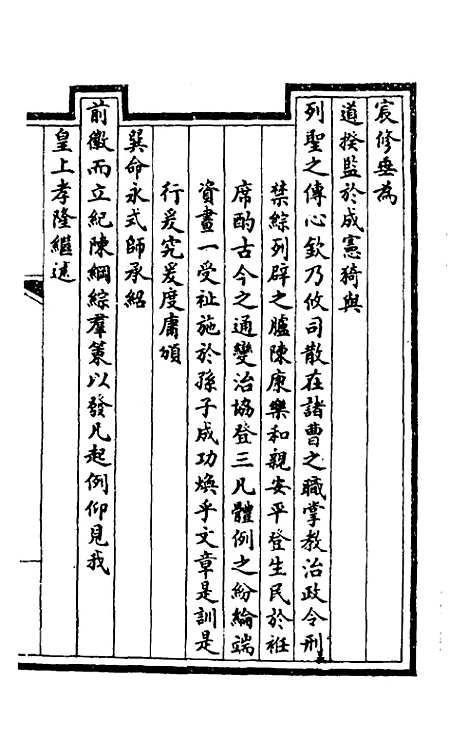 宸修垂為
道揆監於成憲猗與
列聖之傳心欽乃攸司散在諸曹之職掌教治政令刑
禁綜列辟之臚陳康樂和親安平登生民於袵
席酌古今之通變治協登三凡體例之紛綸端
資畫一受祉施於孫子成功煥乎文章是訓是
行爰究爰度庸頒
巽命永式師承紹
前徽而立紀陳綱綜羣策以發凡起例仰見我
皇上孝隆繼述